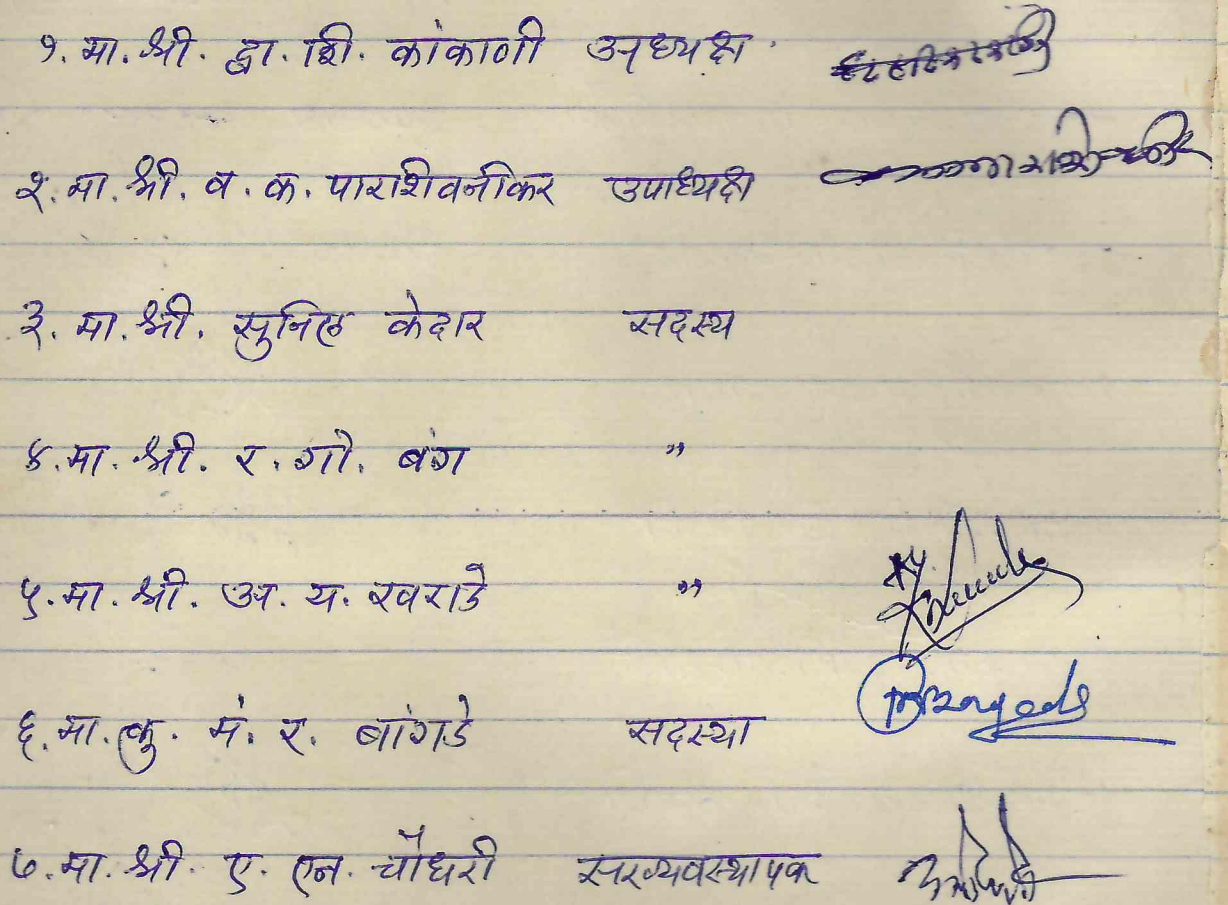 १. मा. श्री. द्वा. शि. कांकाणी अध्यक्ष
२. मा. श्री. व. क. पारशिवनीकर उपाध्यक्ष
३. मा. श्री. सुनिल केदार सदस्य
४. मा. श्री. र. गो. बंग "
५. मा. श्री. अ. य. खराडे "
६. मा. कु. मं. र. बांगडे सदस्या
७. मा. श्री. ए. एन. चौधरी सरव्यवस्थापक